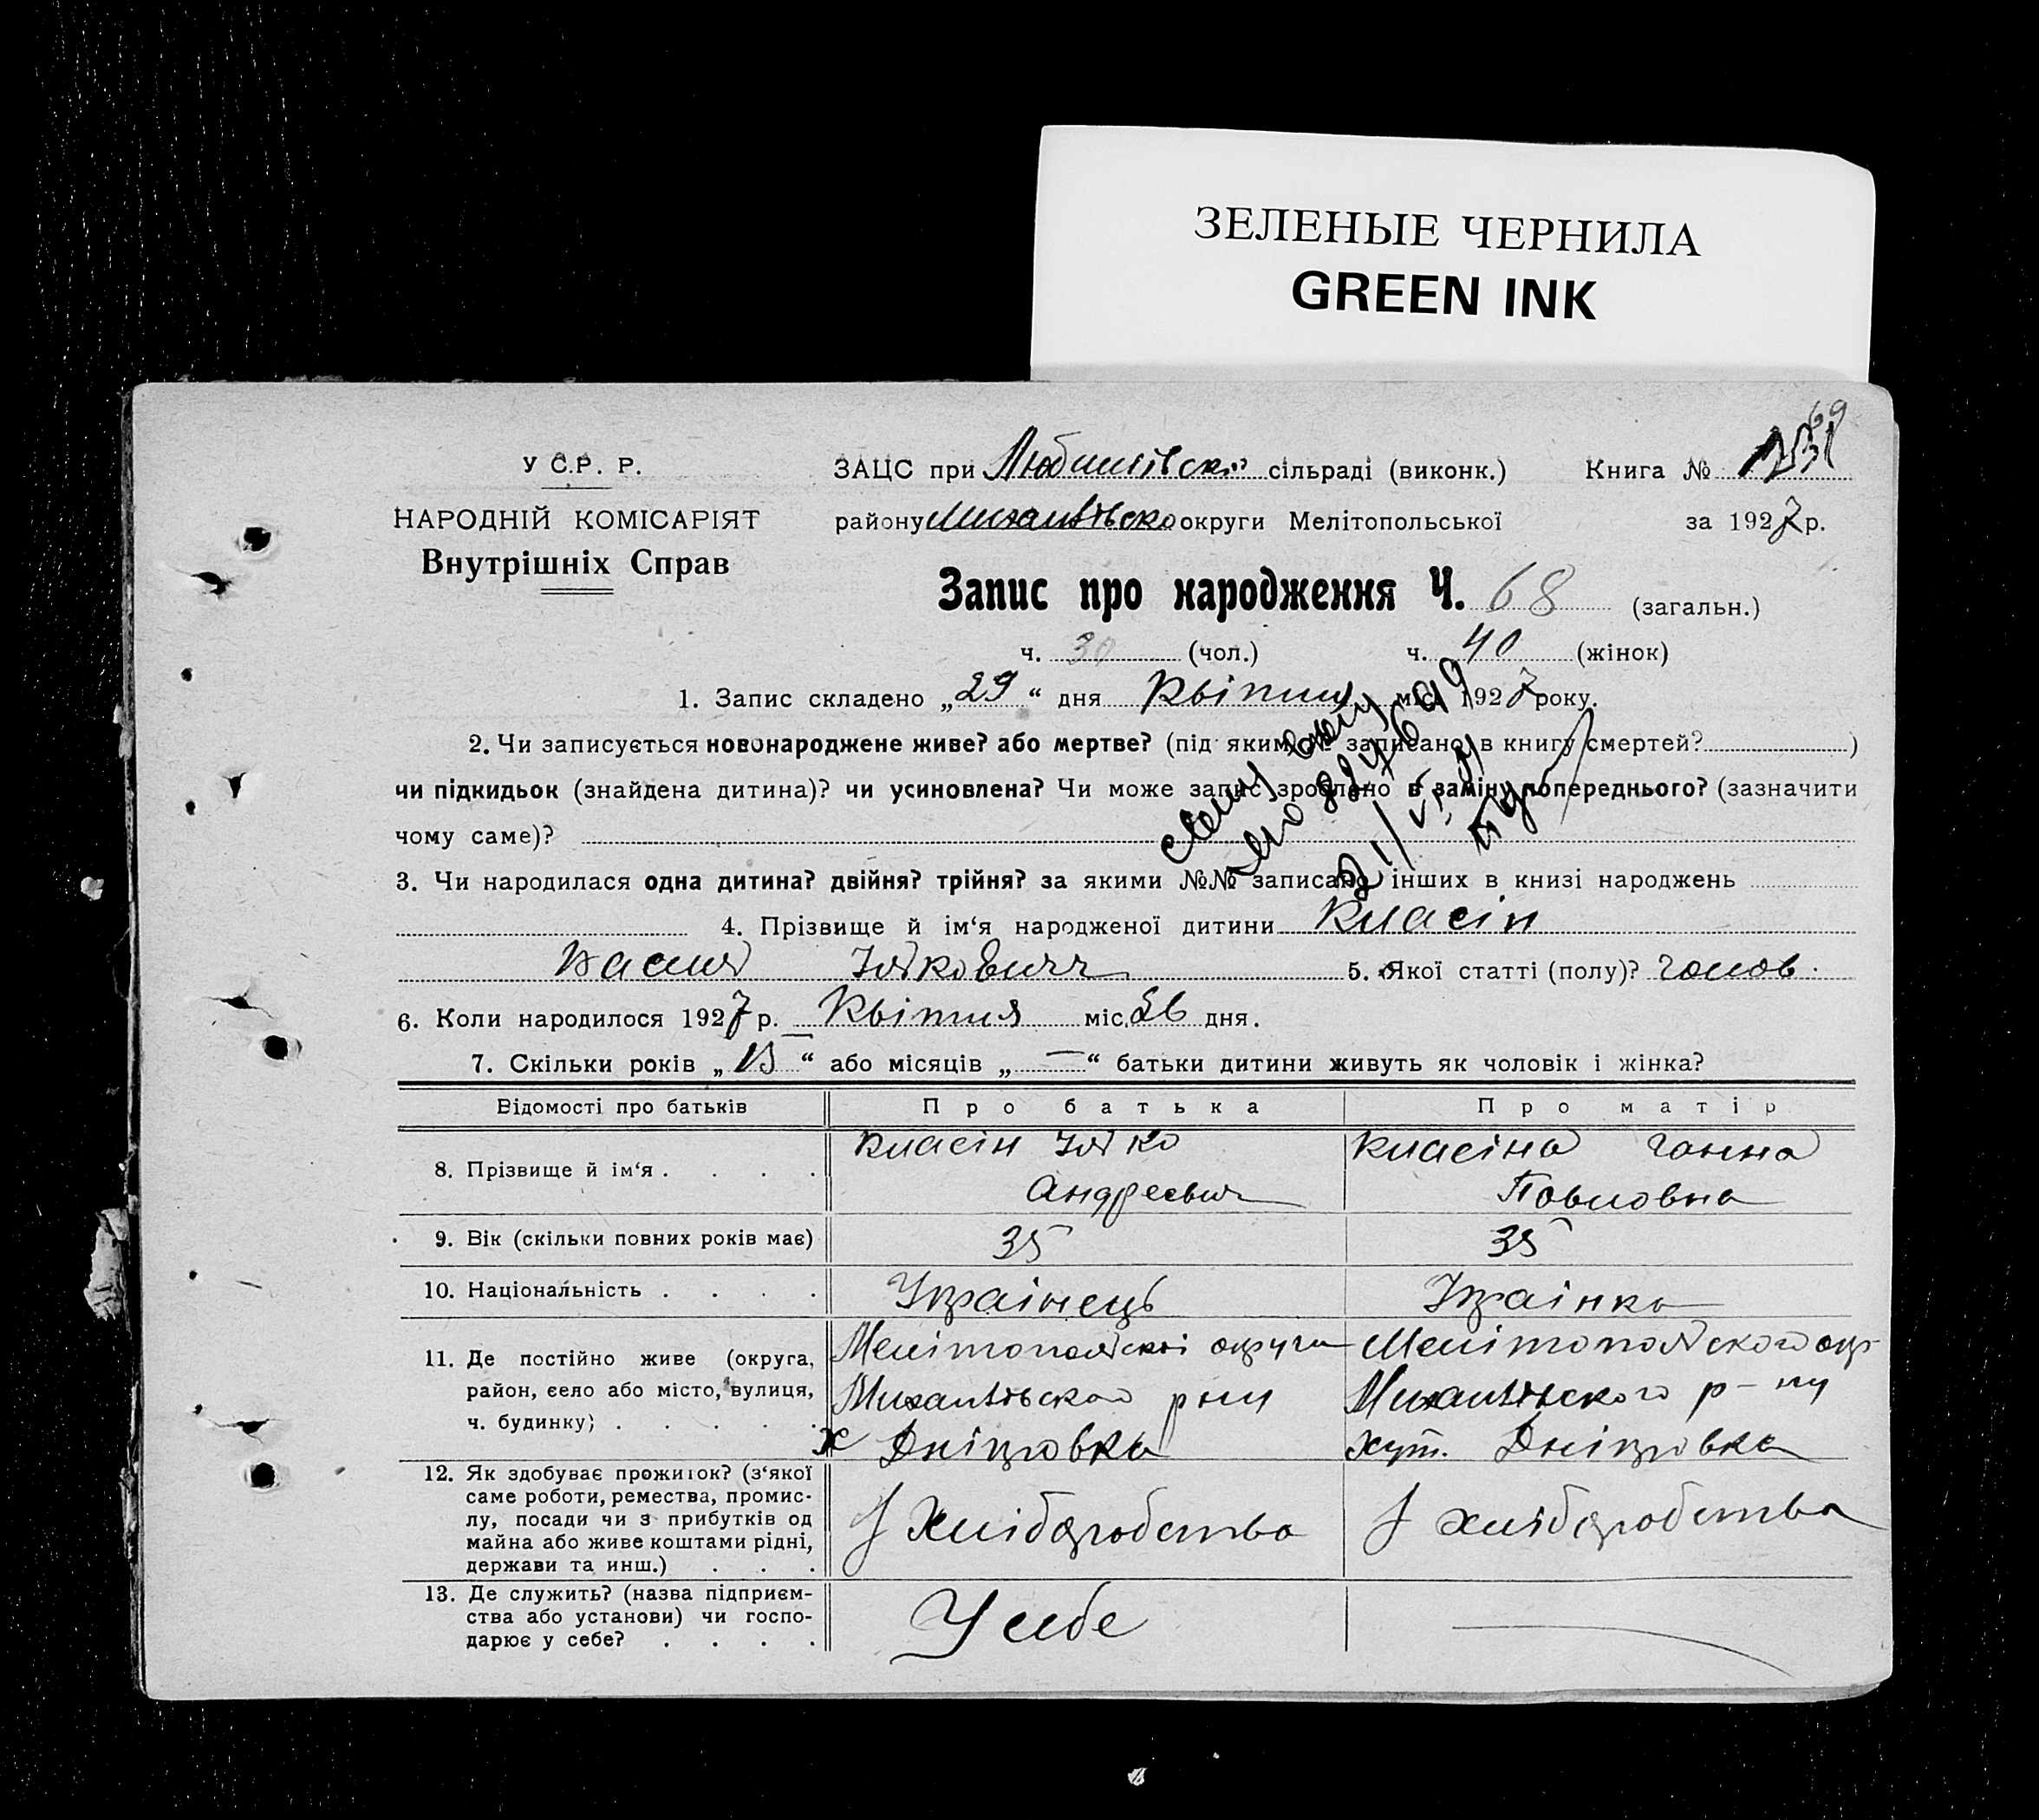 ЗЕЛЕНЫЕ ЧЕРНИЛА
GREEN INK
69
У С.Р. Р.
ЗАЦС при Любимівскі сільраді (виконк.) Книга №
НАРОДНІЙ КОМІСАРІЯТ
району Михайлівсько округи Мелітопольської за 1927 р.
Внутрішніх Справ
Запис про народження Ч. 68 (загальн.)
ч. 30 (чол.) ч. 40 (жінок)
1. Запис складено „29“ дня Квітня міс. 1927 року.
2. Чи записується новонароджене живе? або мертве? (під яким № записано в книгу смертей? )
чи підкидьок (знайдена дитина)? чи усиновлена? Чи може запис зроблено в заміну попереднього? (зазначити
чому саме)?
3. Чи народилася одна дитина? двійня? трійня? за якими №№ записано інших в книзі народжень
4. Прізвище й ім‘я народженої дитини Класін
Василь Яковичч 5. Якої статті (полу)? чолов.
6. Коли народилося 1927 р. Квітня міс. 26 дня.
7. Скільки років „15“ або місяців „—“ батьки дитини живуть як чоловік і жінка?
Відомості про батьків Про батька Про матір
8. Прізвище й ім‘я . . . . Класін Яко Класіна Ганна
Андреевич Павловна
9. Вік (скільки повних років має) 35 35
10. Національність . . . . Українець Українка
11. Де постійно живе (округа, Мелітопольскоі округи Мелітопольского окр
район, село або місто, вулиця, Михайлівского р ну Михайлівского р-ну
ч. будинку) . . . . . х Дніпровка хут. Дніпровка
12. Як здобуває прожиток? (з‘якої
саме роботи, ремества, промис-
лу, посади чи з прибутків од З Хліборобства З хліборобства
майна або живе коштами рідні,
держави та инш.) . . .
13. Де служить? (назва підприєм-
ства або установи) чи госпо- У себе
дарює у себе? . . . .